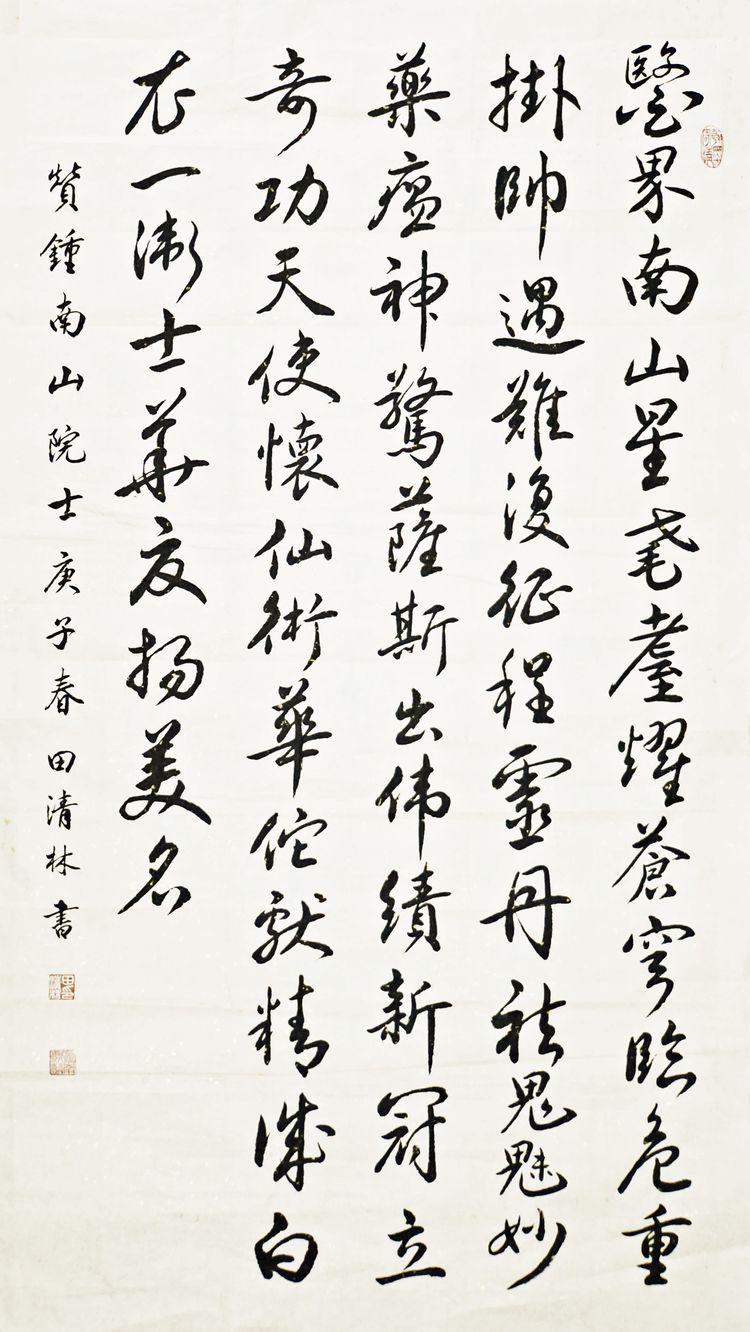 醫界南山星耄耋耀蒼穹臨危重
掛帥遇難復征程靈丹祛鬼魅妙
藥瘟神驚薩斯出伟績新冠立
奇功天使懷仙術華佗獻精誠白
衣一衛士華夏扬美名
贊鍾南山院士庚子春田清林書